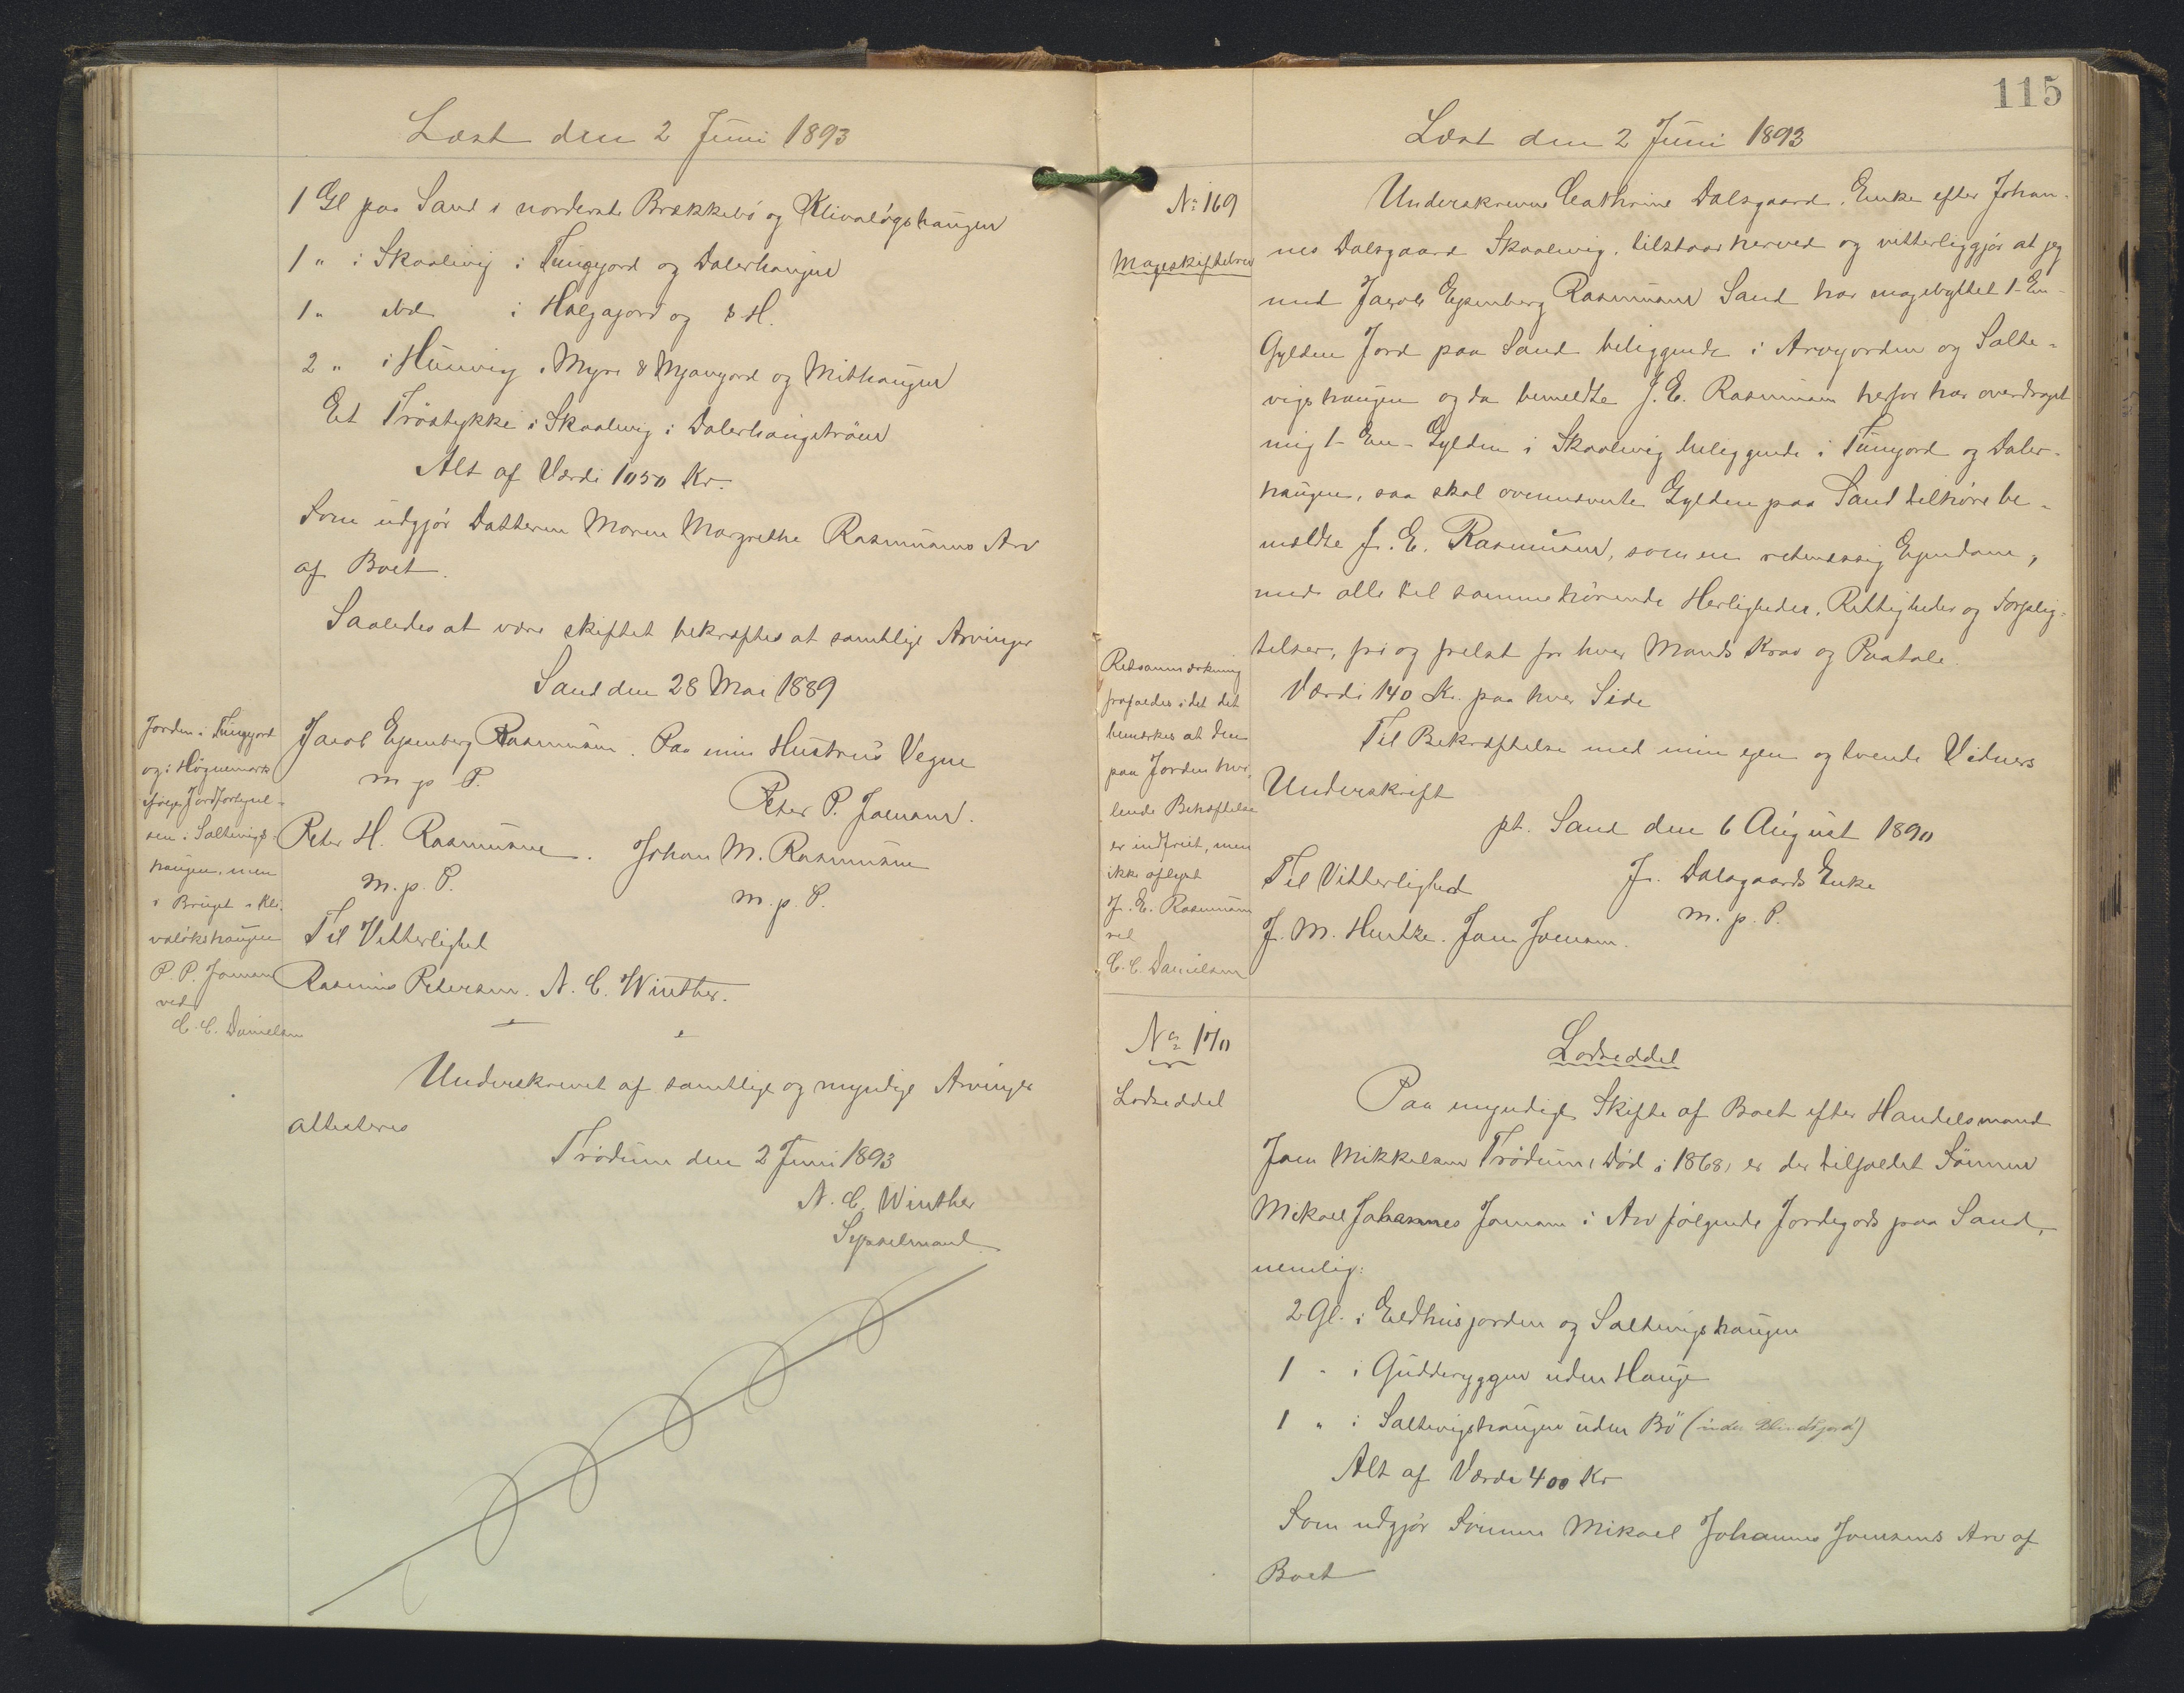 Læst den 2 Juni 1893
1 Gl paa Sand i norderste Brekkebö og Klivalögshaugen
1 " i Skaalevig i Tungjord og Dalerhaugen
1 " ibd i Halgajord og s. H.
2 " i Husevig i Myre & Mjavgord og Mithaugen
Et Tröstykke i Skaalevig i Dalerhaugströen
Alt af Værdi 1050 Kr.
Som udgjör Datteren Maren Margrethe Rasmussens Arv
af Boet.
Saaledes at være skiftet bekræftes at samtlige Arvinger
Sand den 28 Mai 1889
Jacob Espenberg Rasmussen. Paa min Hustrus Vegne
m p P.
Peter P. Joensen.
Peter H. Rasmussen. Johan M. Rasmussen
m. p. P.
m. p. P.
Til Vitterlighed
Rasmus Petersen. N. C. Winther.
Jorden i Tungjord
og i Högnemark
ifölge Jordfortegnel-
sen i Saltevigs-
haugen, men
i Bruget i Kli-
valökshaugen
P. P. Joensen
ved
C. C. Danielsen
Underskrevet af samtlige og myndige Arvinger
attesteres
Trödum den 2 Juni 1893
N. C. Winther
Sysselmand
115
Læst den 2 Juni 1893
No 169
Mageskiftebrev
Underskrevne Cathrine Dalsgaard, Enke efter Johan-
nes Dalsgaard Skaalevig, tilstaar herved og vitterliggjör at jeg
med Jacob Espenberg Rasmussen Sand har magebyttet 1- En-
Gylden Jord paa Sand beliggende i Arvegorden og Salte-
vigshaugen og da bemeldte J. E. Rasmussen herfor har overdraget
mig 1- En- Gylden i Skaalevig beliggende i Tungord og Daler-
haugen, saa skal ovennævnte Gylden paa Sand tilhöre be-
meldte J. E. Rasmussen, som en retmæssig Ejendom,
med alle til samme hörende Herligheder, Rettigheder og Forplig-
telser, fri og frelst for hver Mands Krav og Paatale.
Værdi 140 Kr. paa hver Side
Til Bekræftelse med min egen og tvende Vidners
Underskrift
pt. Sand den 6 August 1890
Til Vitterlighed J. Dalsgaards Enke
m. p. P.
J. M. Hentze. Joen Joensen.
Retsanmærkning
frafaldes idet det
bemærkes at den
paa Jorden hvi-
lende Behæftelse
er indfriet, men
ikke aflyst
J. E. Rasmussen
ved
C. C. Danielsen
No 170
Lodseddel
Lodseddel
Paa myndigt Skifte af Boet efter Handelsmand
Joen Mikkelsen Trödum, Död i 1868, er der tilfaldet Sönnen
Mikael Johannes Joensen i Arv fölgende Jordegods paa Sand,
nemlig:
2 Gl. i Eldhusjorden og Saltevigshaugen
1 " i Gudderyggen uden Hauge
1 " i Saltevigshaugen uden Bö (under Blindsjord)
Alt af Værdi 400 Kr
Som udgjör Sönnen Mikael Johannes Joensens Arv af
Boet